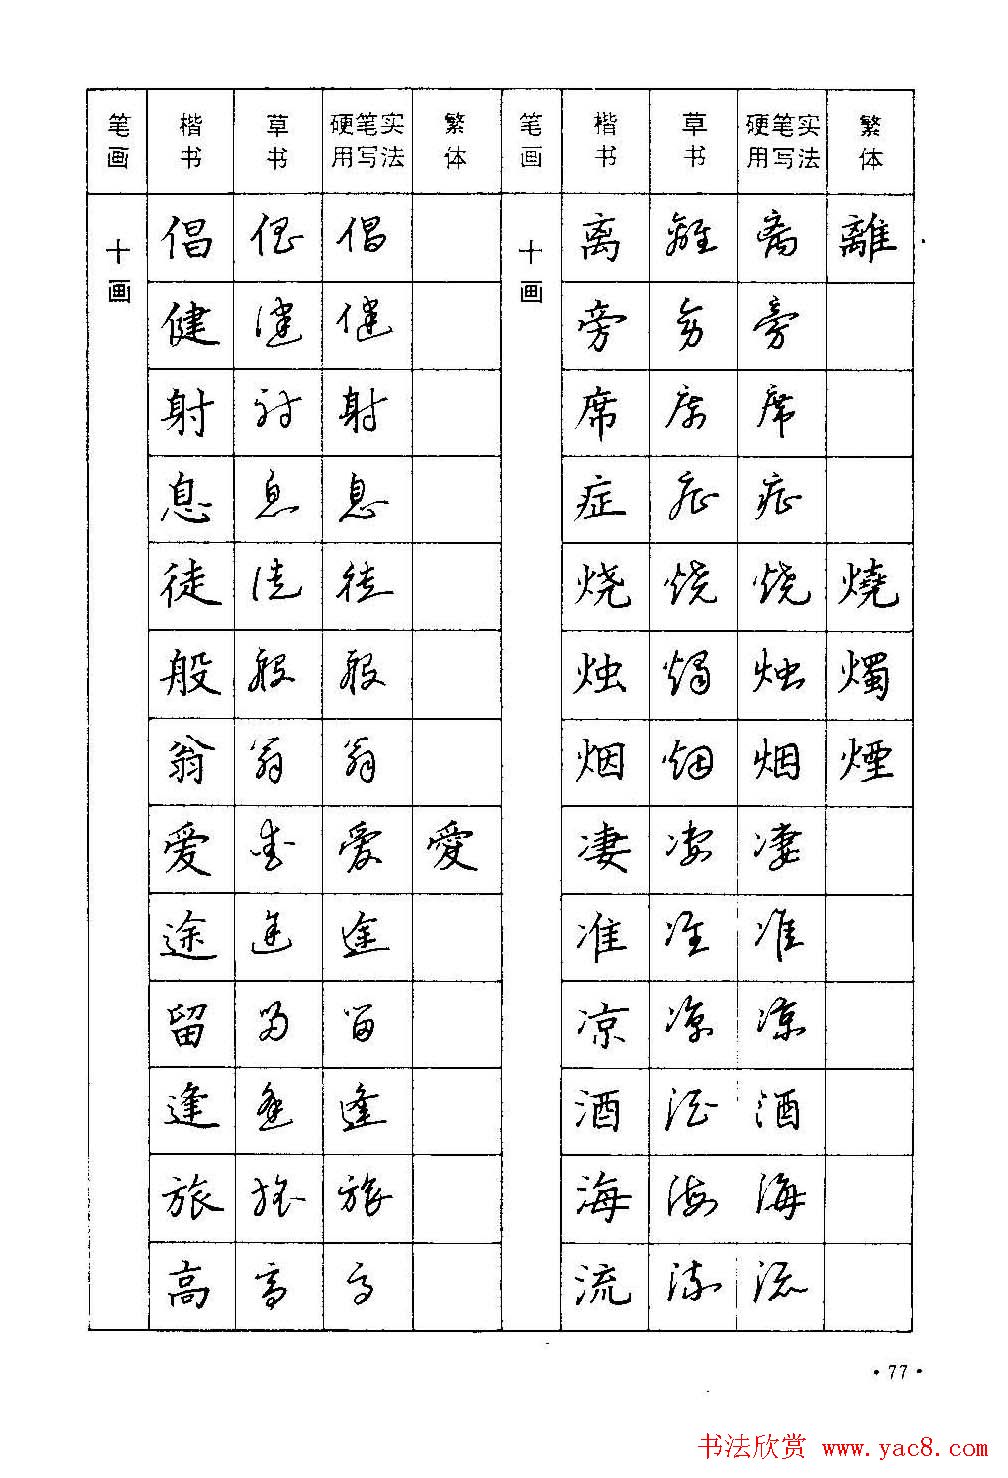 笔画 楷书 草书 硬笔实用写法 繁体 笔画 楷书 草书 硬笔实用写法 繁体
十画 倡 倡 倡 十画 离 離 离 離
健 健 健 旁 旁 旁
射 射 射 席 席 席
息 息 息 症 症 症
徒 徒 徒 烧 烧 烧 燒
般 般 般 烛 燭 烛 燭
翁 翁 翁 烟 烟 烟 煙
爱 爱 爱 愛 凄 凄 凄
途 途 途 准 准 准
留 留 留 凉 凉 凉
逢 逢 逢 酒 酒 酒
旅 旅 旅 海 海 海
高 高 高 流 流 流
·77·
书法欣赏 www.yac8.com